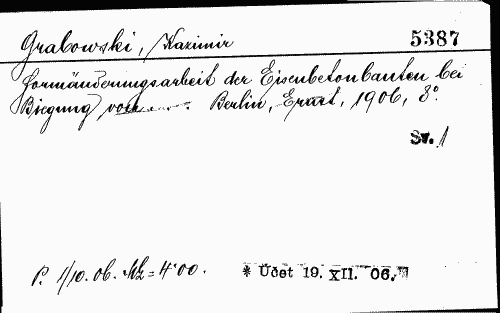 Grabowski, Kazimir 5387
Formänderungsarbeit der Eisenbetonbauten bei
Biegung von Berlin, Ernst, 1906, 8°.
Sv. 1
P. 1/10. 06. Mk = 4·00. * Üðet 19. XII. 06.